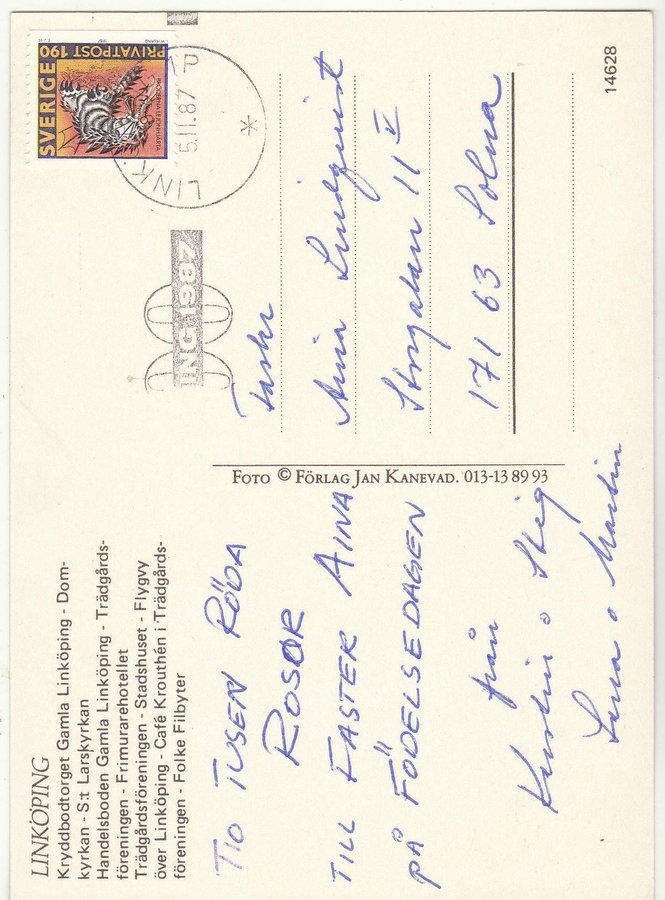 LINKÖPING
Kryddbodtorget Gamla Linköping - Dom-
kyrkan - S:t Larskyrkan
Handelsboden Gamla Linköping - Trädgårds-
föreningen - Frimurarehotellet
Trädgårdsföreningen - Stadshuset - Flygvy
över Linköping - Café Krouthén i Trädgårds-
föreningen - Folke Filbyter
TIO TUSEN RÖDA
ROSOR
TILL FASTER AINA
PÅ FÖDELSEDAGEN
från
Kerstin o Stig
Lena o Martin
FOTO © FÖRLAG JAN KANEVAD. 013-13 89 93
SVERIGE
PRIVATPOST 190
BRÖDERNA LEJONHJÄRTA
1987
LINK P
5.11.87
*
NG 1987
Aina Lindquist
Storgatan 11 V
171 63 Solna
14628